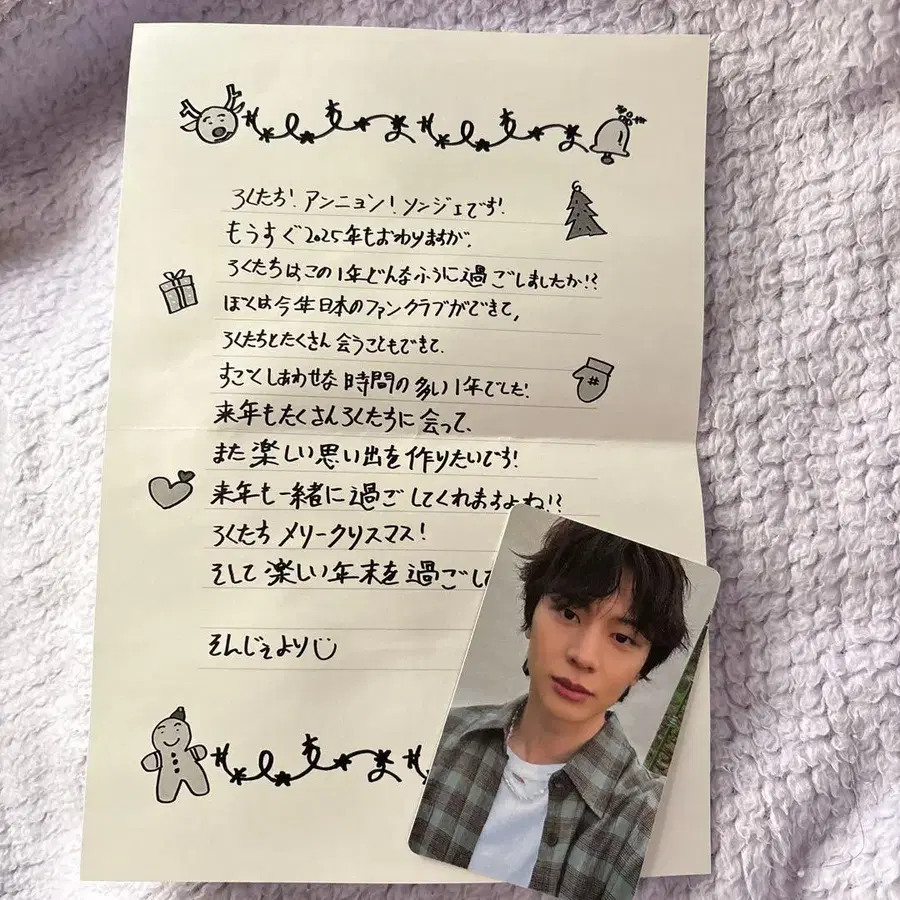 ろくたち！アンニョン！ソンジェです！
もうすぐ2025年もおわりますが、
ろくたちはこの1年どんなふうに過ごしましたか!?
ぼくは今年日本のファンクラブができて、
ろくたちとたくさん会うこともできて、
すごくしあわせな時間の多い1年でした！
来年もたくさんろくたちに会って、
また楽しい思い出を作りたいです！
来年も一緒に過ごしてくれますよね!?
ろくたちメリークリスマス！
そして楽しい年末を過ごして
そんじぇより